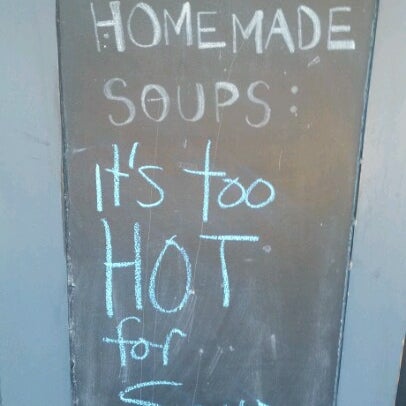 HOMEMADE
SOUPS:
it's too
HOT
for